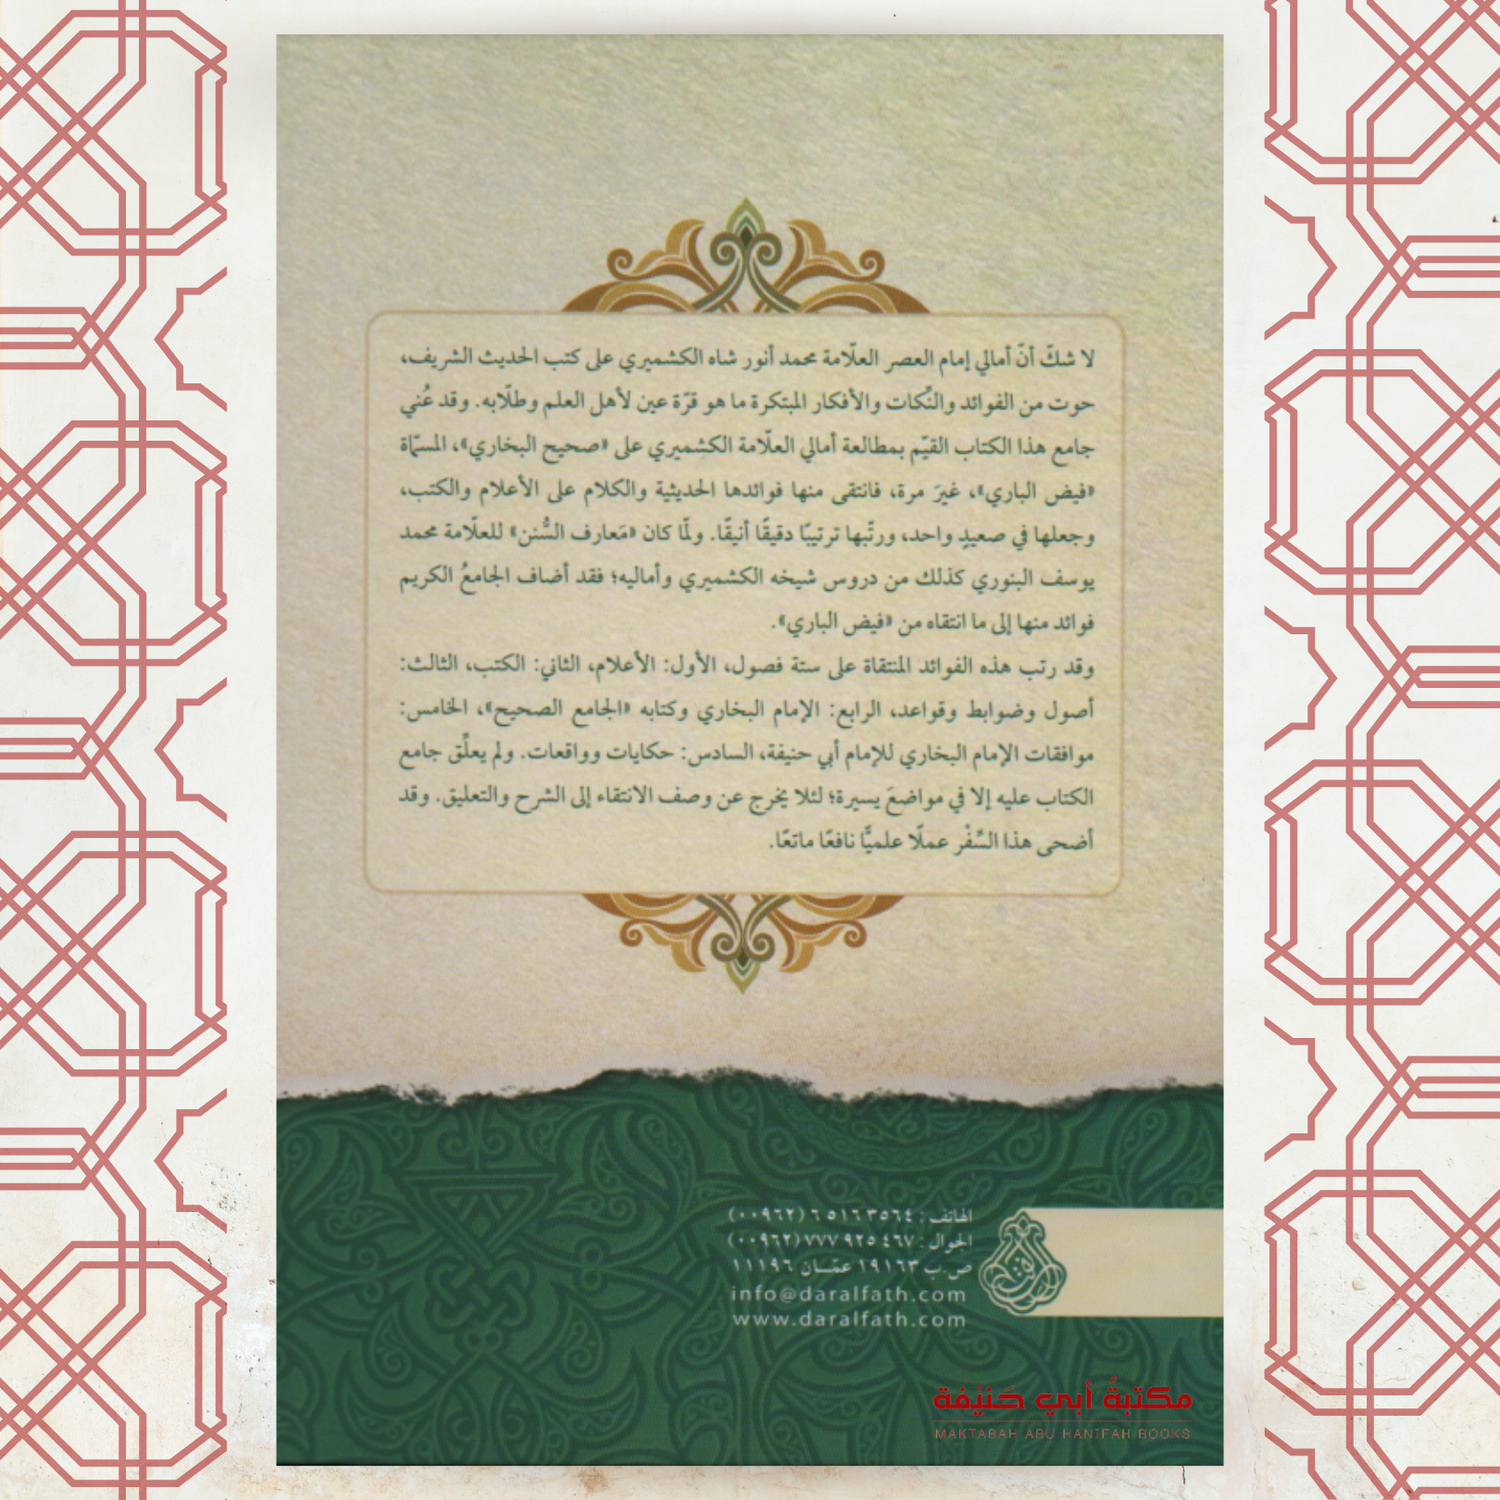 لا شكّ أنّ أمالي إمام العصر العلّامة محمد أنور شاه الكشميري على كتب الحديث الشريف،
حوت من الفوائد والنِّكات والأفكار المبتكرة ما هو قرّة عين لأهل العلم وطلّابه. وقد عُني
جامع هذا الكتاب القيّم بمطالعة أمالي العلّامة الكشميري على «صحيح البخاري»، المسمّاة
«فيض الباري»، غيرَ مرة، فانتقى منها فوائدها الحديثية والكلام على الأعلام والكتب،
وجعلها في صعيدٍ واحد، ورتّبها ترتيبًا دقيقًا أنيقًا. ولمّا كان «مَعارف السُّنن» للعلّامة محمد
يوسف البنوري كذلك من دروس شيخه الكشميري وأماليه؛ فقد أضاف الجامعُ الكريم
فوائد منها إلى ما انتقاه من «فيض الباري».
وقد رتب هذه الفوائد المنتقاة على ستة فصول، الأول: الأعلام، الثاني: الكتب، الثالث:
أصول وضوابط وقواعد، الرابع: الإمام البخاري وكتابه «الجامع الصحيح»، الخامس:
موافقات الإمام البخاري للإمام أبي حنيفة، السادس: حكايات وواقعات. ولم يعلِّق جامع
الكتاب عليه إلا في مواضعَ يسيرة؛ لئلا يخرج عن وصف الانتقاء إلى الشرح والتعليق. وقد
أضحى هذا السِّفْر عملًا علميًّا نافعًا ماتعًا.
الهاتف : ٦٥١٦٣٥٦٤ (٠٠٩٦٢)
الجوال : ٧٧٧ ٩٢٥ ٤٦٧ (٠٠٩٦٢)
ص.ب ١٩١٦٣ عمّان ١١١٩٦
info@daralfath.com
www.daralfath.com
مكتبةُ أبي حَنيْفة
MAKTABAH ABU HANIFAH BOOKS